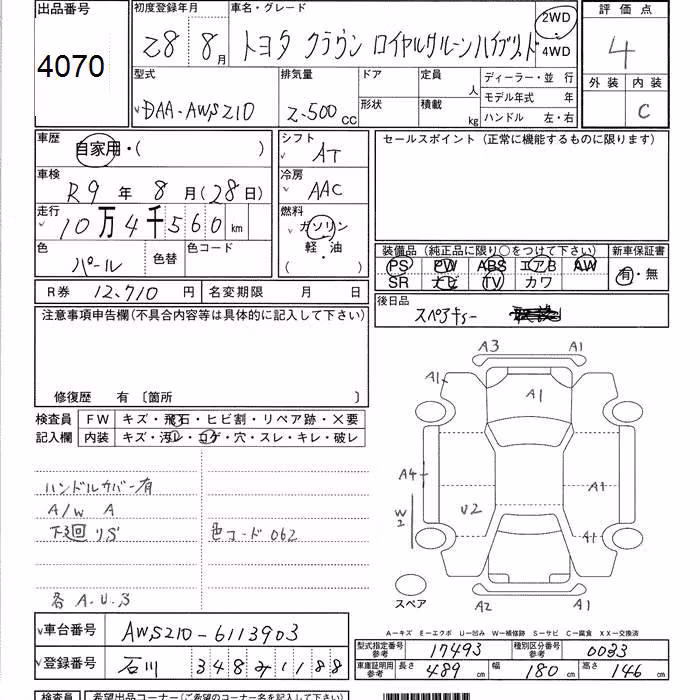 出品番号
4070
初度登録年月
28 8月
車名・グレード
トヨタ クラウン ロイヤルサルーン ハイブリッド
2WD
4WD
評価点
4
外装 内装
C
型式
DAA-AWS210
排気量
2.500cc
ドア
形状
定員
人
積載
kg
ディーラー・並 行
モデル年式 年
ハンドル 左・右
車歴
自家用・( )
車検
R9年 8月(28日)
走行
10万4千560km
色
パール
色替
色コード
シフト
AT
冷房
AAC
燃料
ガソリン
軽・油
( )
セールスポイント(正常に機能するものに限ります)
装備品(純正品に限り○をつけて下さい)
PS PW ABS エアB AW
SR ナビ TV カワ
新車保証書
有・無
R券 12,710円
名変期限 月 日
後日品
スペアキー
注意事項申告欄(不具合内容等は具体的に記入して下さい)
修復歴 有〔箇所 〕
検査員
記入欄
FW キズ・飛石・ヒビ割・リペア跡・×要
内装 キズ・汚レ・コゲ・穴・スレ・キレ・破レ
ハンドルカバー有
A/W A
下廻リS
色コード 062
各 A.U.S
A3 A1
A1
A1
A4
A1
W2
U2
A1
スペア
A2 A1
A―キズ E―エクボ U―凹み W―補修跡 S―サビ C―腐食 XX―交換済
車台番号
AWS210-6113903
登録番号
石川 348 み 1188
型式指定番号
参考
17493
種別区分番号
参考
0033
車庫証明用
参考
長さ 489cm
幅 180cm
高さ 146cm
検査員
希望出品コーナー(ご希望のコーナー名を記入して下さい)